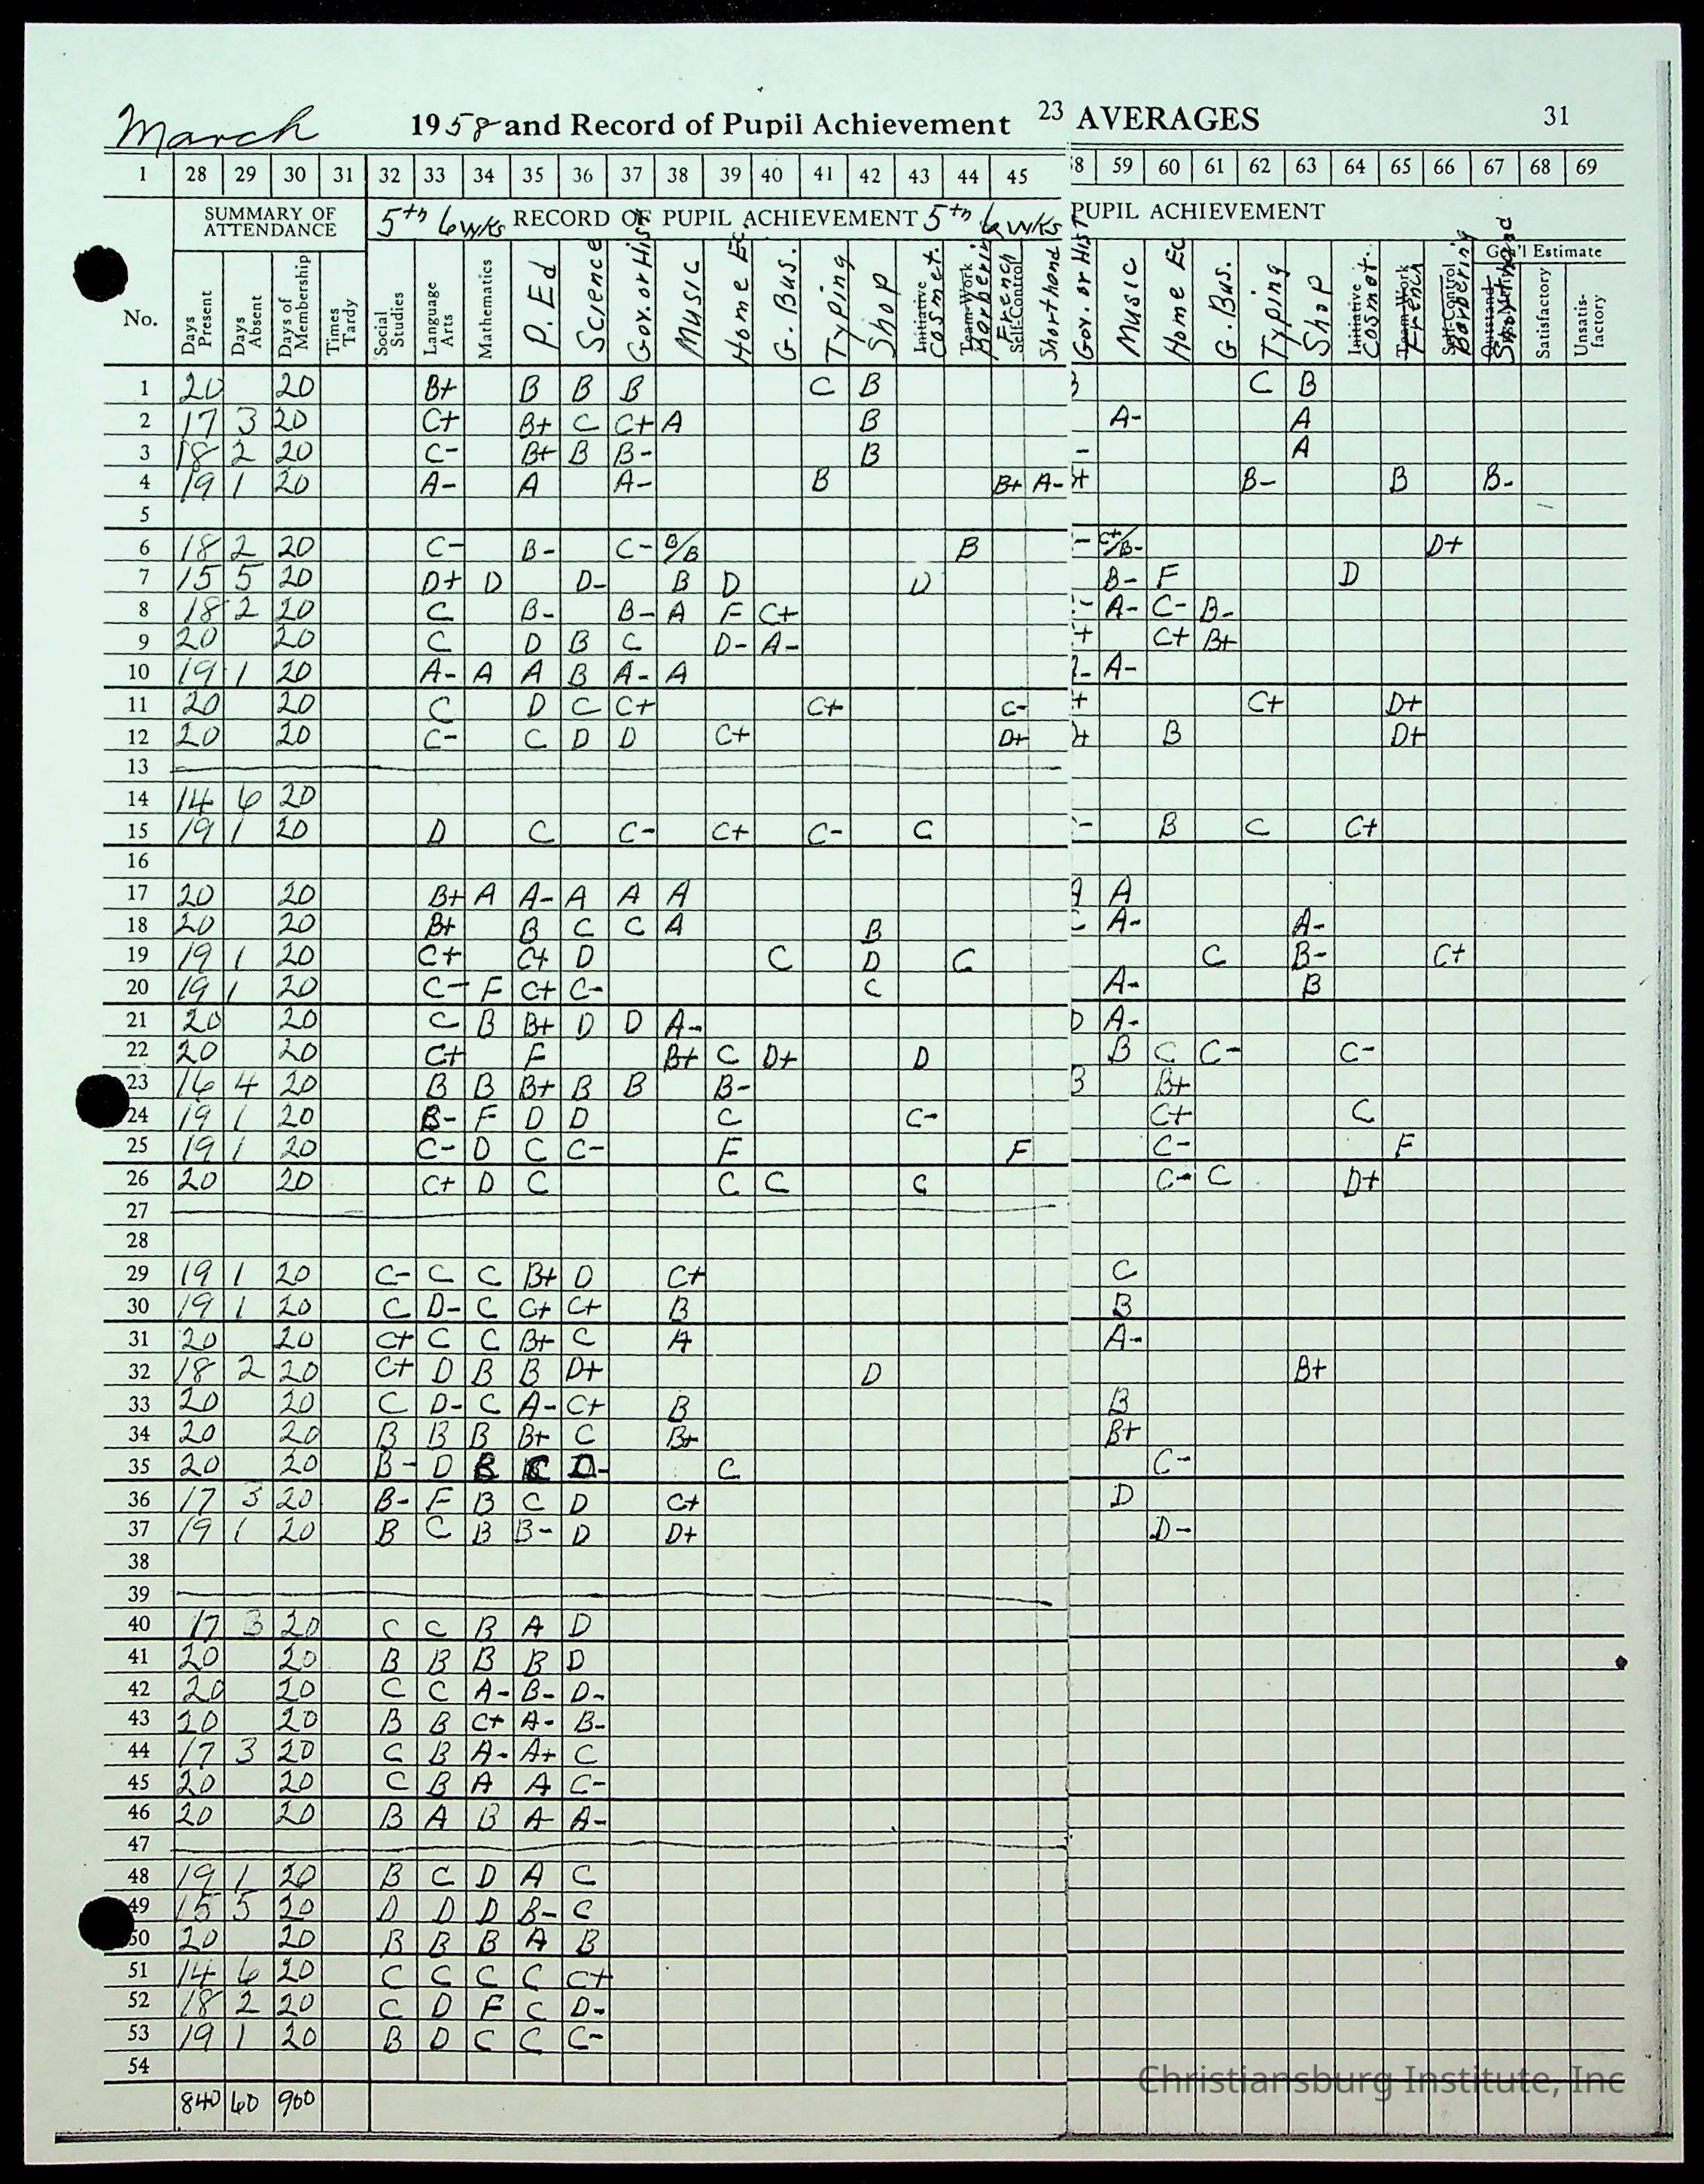 March 1958 and Record of Pupil Achievement 23 AVERAGES 31
1 28 29 30 31 32 33 34 35 36 37 38 39 40 41 42 43 44 45 58 59 60 61 62 63 64 65 66 67 68 69
SUMMARY OF ATTENDANCE 5th 6 wks RECORD OF PUPIL ACHIEVEMENT 5th 6 wks PUPIL ACHIEVEMENT
Gen'l Estimate
No. Days Present Days Absent Days of Membership Times Tardy Social Studies Language Arts Mathematics P. Ed Science Gov. or Hist Music Home Ec. G. Bus. Typing Shop Initiative Cosmet. Team-Work Barbering French Self-Control Shorthand Gov. or Hist Music Home Ec G. Bus. Typing Shop Initiative Cosmet. Team-Work French Self-Control Barbering Shorthand Satisfactory Unsatisfactory
1 20 20 B+ B B B C B B C B
2 17 3 20 C+ B+ C C+ A B A- A
3 18 2 20 C- B+ B B- B - A
4 19 1 20 A- A A- B B+ A- + B- B B-
5
6 18 2 20 C- B- C- B/B B - C+/B- D+
7 15 5 20 D+ D D- B D D B- F D
8 18 2 20 C B- B- A F C+ - A- C- B-
9 20 20 C D B C D- A- + C+ B+
10 19 1 20 A- A A B A- A - A-
11 20 20 C D C C+ C+ C- + C+ D+
12 20 20 C- C D D C+ D+ D+ B D+
13
14 14 6 20
15 19 1 20 D C C- C+ C- C - B C C+
16
17 20 20 B+ A A- A A A A A
18 20 20 B+ B C C A B C A- A-
19 19 1 20 C+ C+ D C D C C B- C+
20 19 1 20 C- F C+ C- C A- B
21 20 20 C B B+ D D A- D A-
22 20 20 C+ F B+ C D+ D B C C- C-
23 16 4 20 B B B+ B B B- B B+
24 19 1 20 B- F D D C C- C+ C
25 19 1 20 C- D C C- F F C- F
26 20 20 C+ D C C C C C- C D+
27
28
29 19 1 20 C- C C B+ D C+ C
30 19 1 20 C D- C C+ C+ B B
31 20 20 C+ C C B+ C A A-
32 18 2 20 C+ D B B D+ D B+
33 20 20 C D- C A- C+ B B
34 20 20 B B B B+ C B+ B+
35 20 20 B- D B C D- C C-
36 17 3 20 B- F B C D C+ D
37 19 1 20 B C B B- D D+ D-
38
39
40 17 3 20 C C B A D
41 20 20 B B B B D
42 20 20 C C A- B- D-
43 20 20 B B C+ A- B-
44 17 3 20 C B A- A+ C
45 20 20 C B A A C-
46 20 20 B A B A A-
47
48 19 1 20 B C D A C
49 15 5 20 D D D B- C
50 20 20 B B B A B
51 14 6 20 C C C C C+
52 18 2 20 C D F C D-
53 19 1 20 B D C C C-
54
840 60 900
Christiansburg Institute, Inc